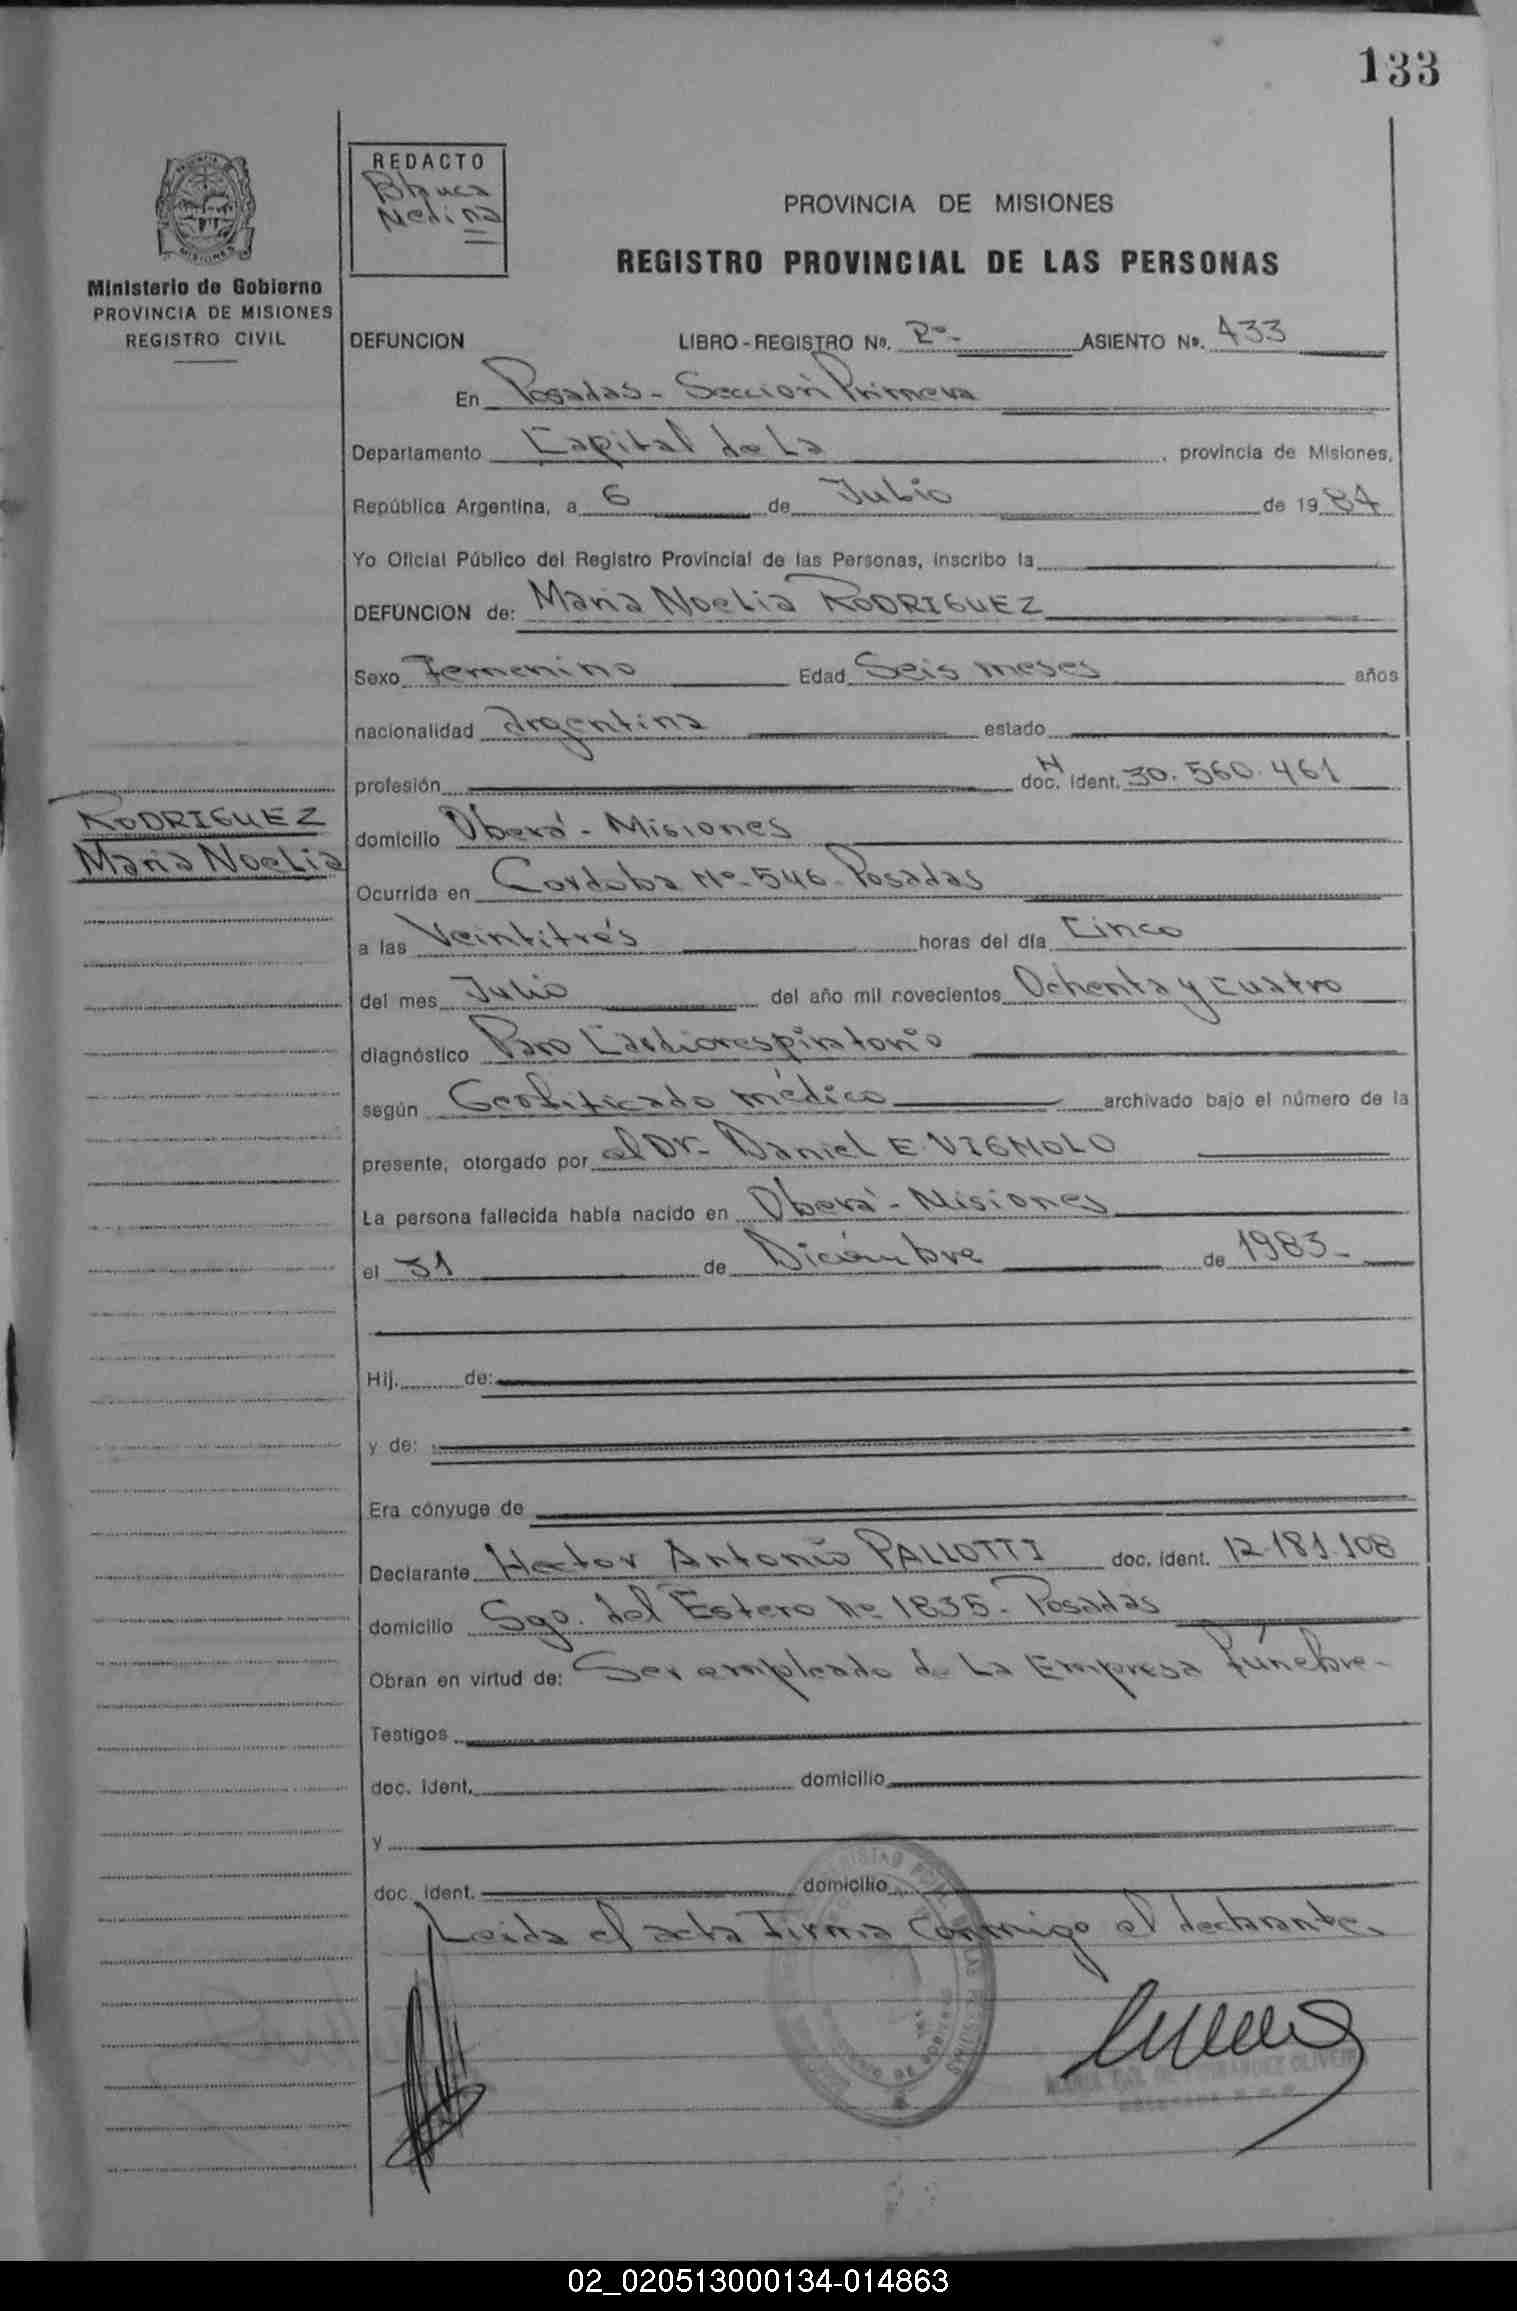 133
REDACTO
Blanca
Medina
PROVINCIA DE MISIONES
REGISTRO PROVINCIAL DE LAS PERSONAS
Ministerio de Gobierno
PROVINCIA DE MISIONES
REGISTRO CIVIL
DEFUNCION LIBRO-REGISTRO Nº. 2º- ASIENTO Nº. 433
En Posadas - Sección Primera
Departamento Capital de La , provincia de Misiones,
República Argentina, a 6 de Julio de 1984
Yo Oficial Público del Registro Provincial de las Personas, inscribo la
DEFUNCION de: Maria Noelia RODRIGUEZ
Sexo Femenino Edad Seis meses años
nacionalidad Argentina estado
profesión doc. N ident. 30.560.461
RODRIGUEZ
Maria Noelia
domicilio Oberá - Misiones
Ocurrida en Cordoba Nº 546 - Posadas
a las Veintitrés horas del día Cinco
del mes Julio del año mil novecientos Ochenta y cuatro
diagnóstico Paro Cardiorespiratorio
según Certificado médico archivado bajo el número de la
presente, otorgado por el Dr. Daniel E. VIGNOLO
La persona fallecida había nacido en Oberá - Misiones
el 31 de Diciembre de 1983.-
Hij. de:
y de:
Era cónyuge de
Declarante Hector Antonio PALLOTTI doc. ident. 12.181.108
domicilio Sgo. del Estero Nº 1835 - Posadas
Obran en virtud de: Ser empleado de La Empresa fúnebre -
Testigos
doc. ident. domicilio
y
doc. ident. domicilio
Leida el acta Firma conmigo el declarante.
02_020513000134-014863